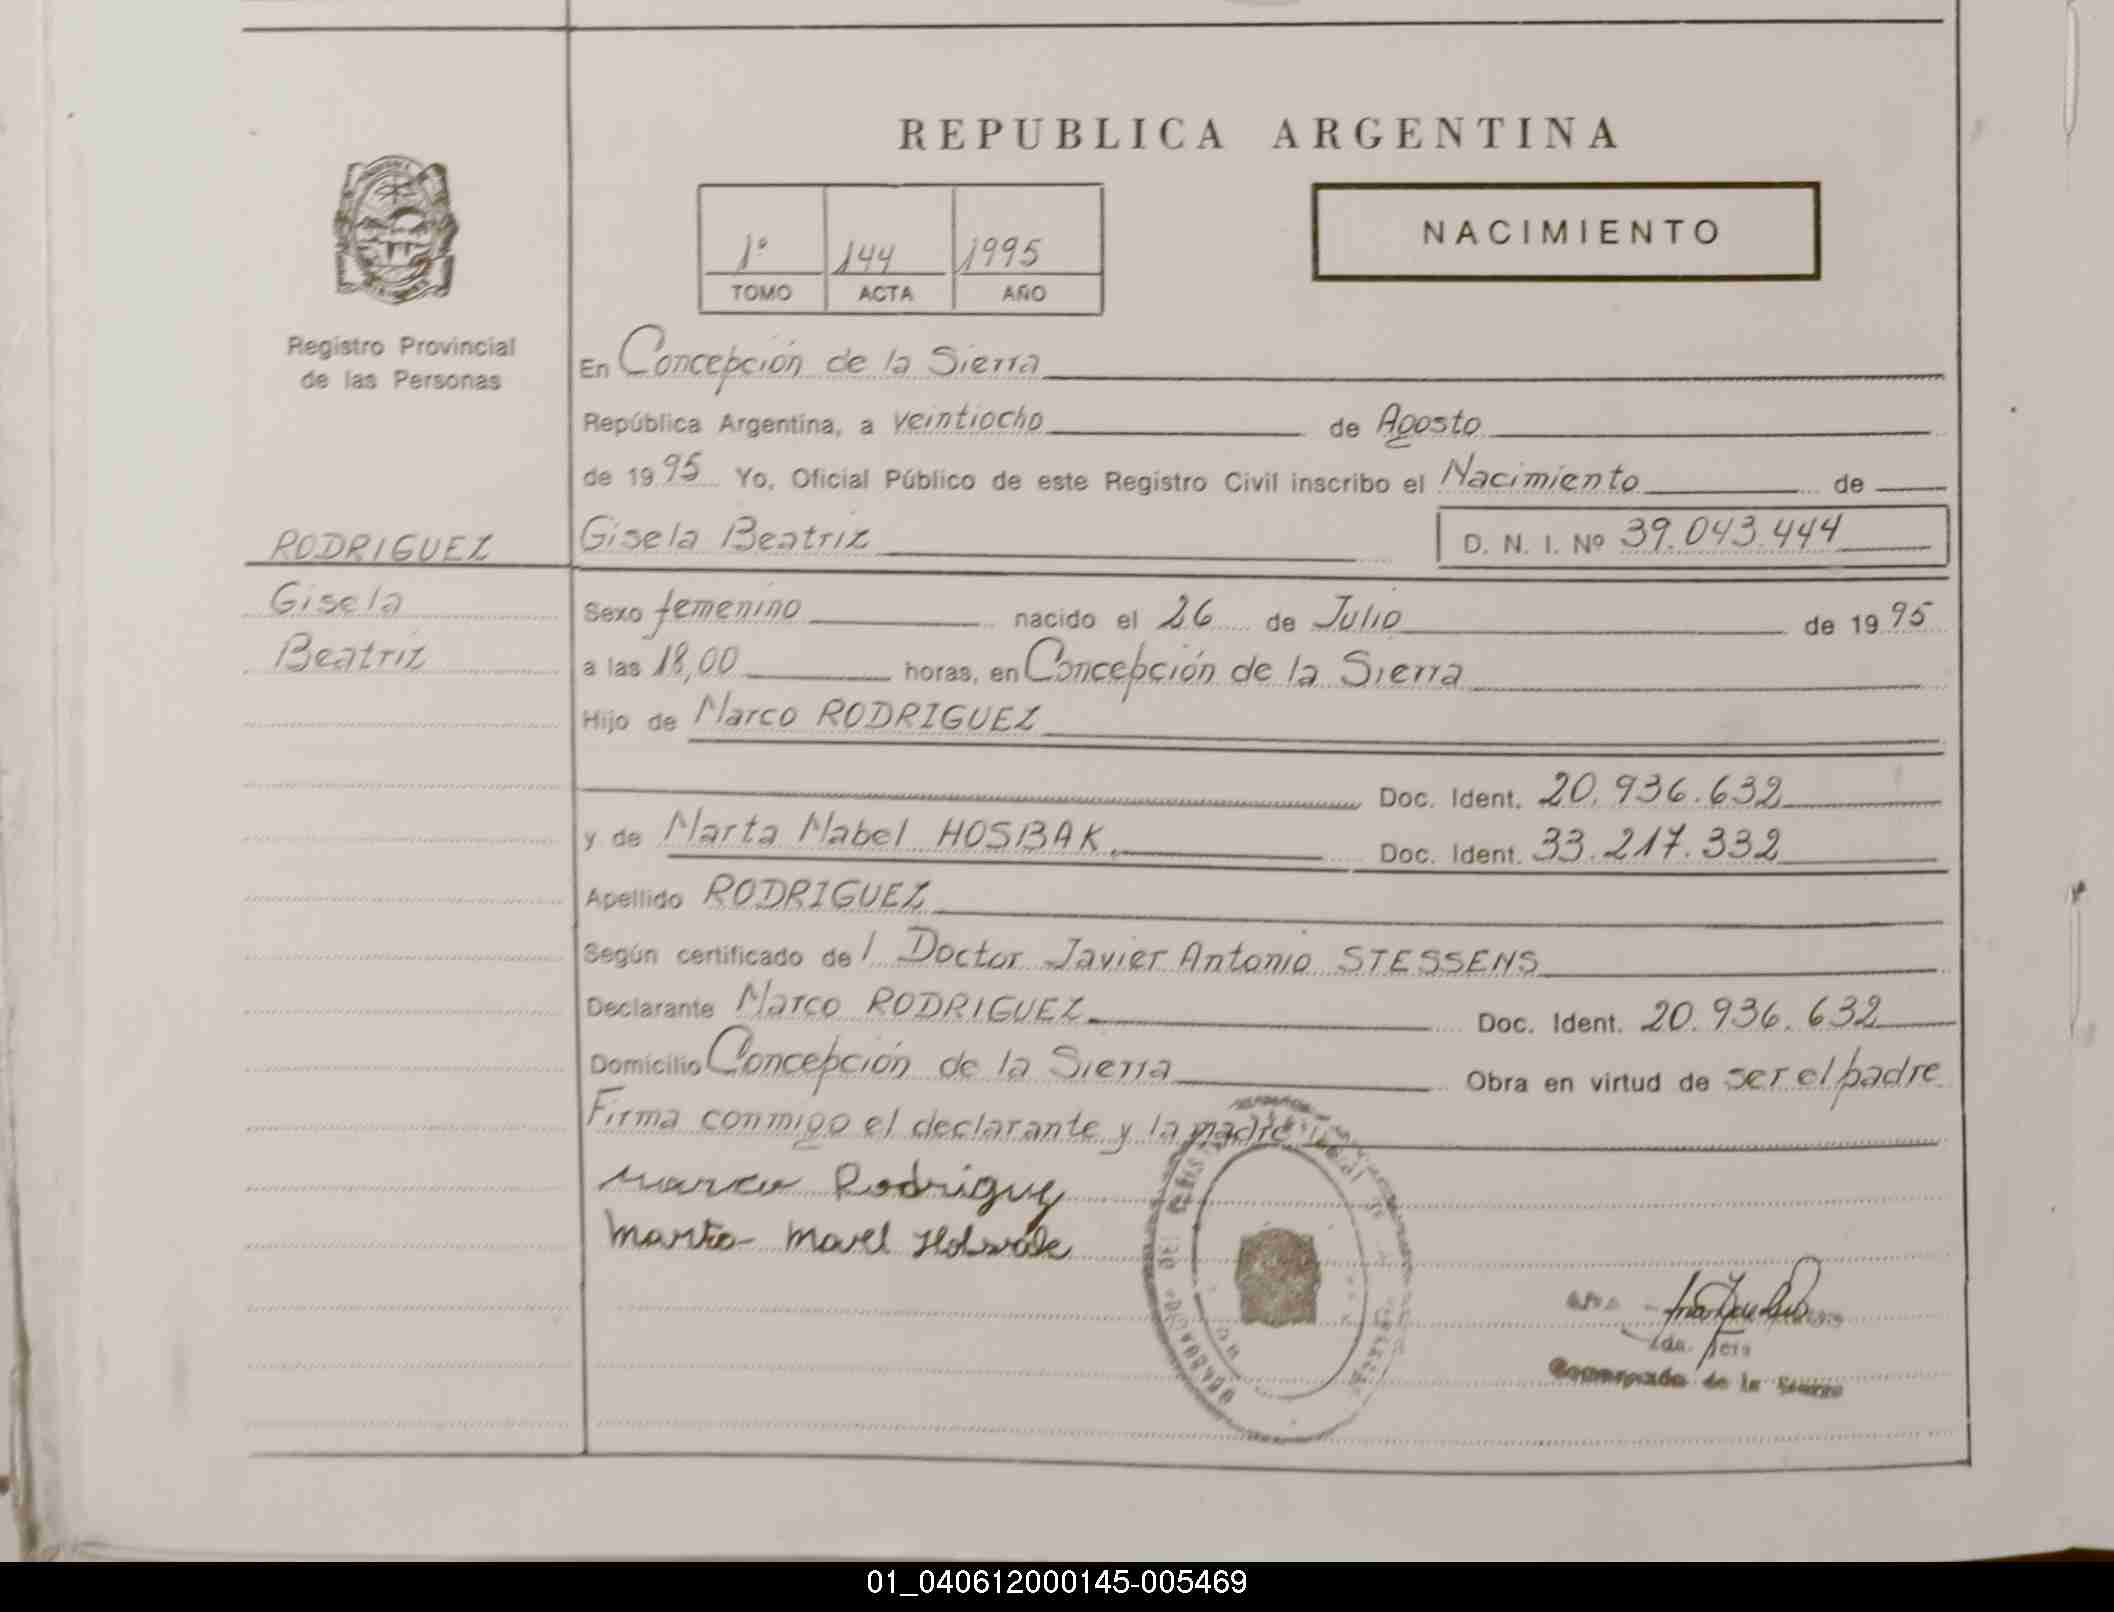 REPUBLICA ARGENTINA
1º 144 1995
TOMO ACTA AÑO
NACIMIENTO
Registro Provincial
de las Personas
En Concepción de la Sierra
República Argentina, a veintiocho de Agosto
de 1995 Yo, Oficial Público de este Registro Civil inscribo el Nacimiento de
RODRIGUEZ
Gisela
Beatriz
Gisela Beatriz D. N. I. Nº 39.043.444
Sexo femenino nacido el 26 de Julio de 1995
a las 18,00 horas, en Concepción de la Sierra
Hijo de Marco RODRIGUEZ
Doc. Ident. 20.936.632
y de Marta Mabel HOSBAK Doc. Ident. 33.217.332
Apellido RODRIGUEZ
Según certificado del Doctor Javier Antonio STESSENS
Declarante Marco RODRIGUEZ Doc. Ident. 20.936.632
Domicilio Concepción de la Sierra Obra en virtud de ser el padre
Firma conmigo el declarante y la madre
Marco Rodriguez
Marta Mavel
de la Sierra
01_040612000145-005469